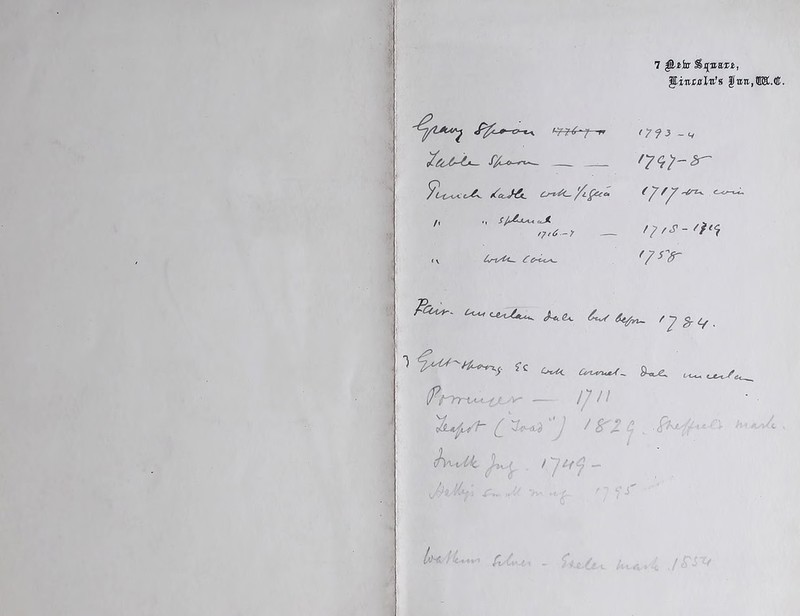 7 New Square,
Lincoln's Inn, W.C.
Gravy Spoon 1776-7 1793-4
Table Spoon — — 1797-8
Punch Ladle with ½ guinea 1717 on coin
" " spherical
1716-7 — 1718-1719
" with coin 1758
Pair uncertain date but before 1784.
3 Gilt Spoons &c with coronet - date uncertain
Porringer — 1711
Teapot ("Toad") 1829. Sheffield mark.
Milk Jug. 1749 -
small mug 1795
Watkins Silver - Exeter mark. 1854